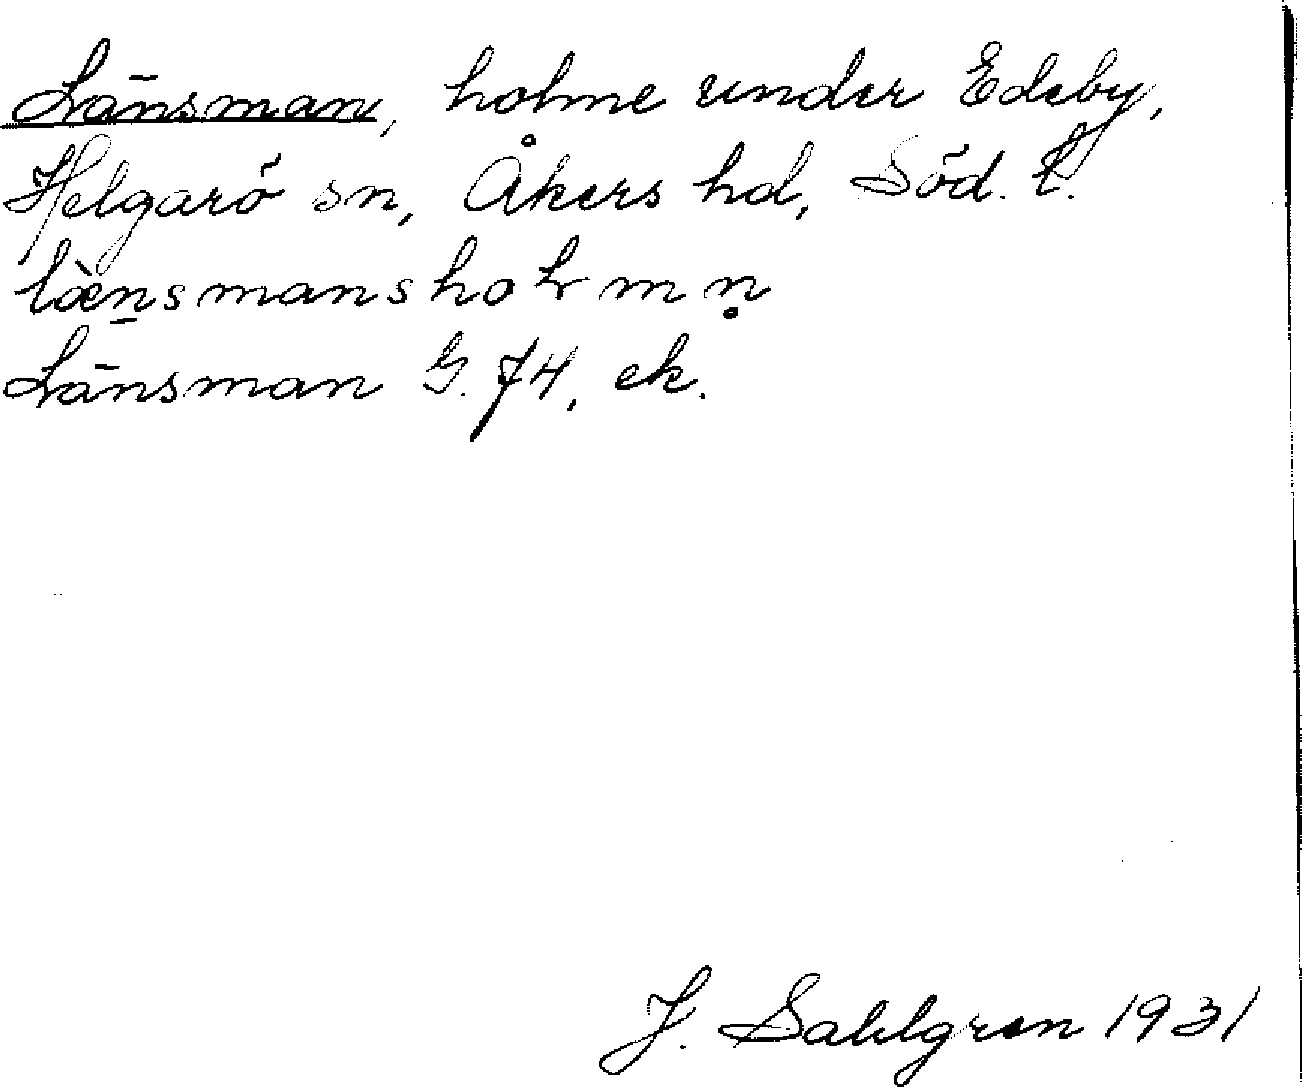 Länsman, holme under Edeby,
Helgarö sn, Åkers hd, Söd. l.
læ̀n̠smansholmn̥
Länsman G. 74, ek.
J. Sahlgren 1931